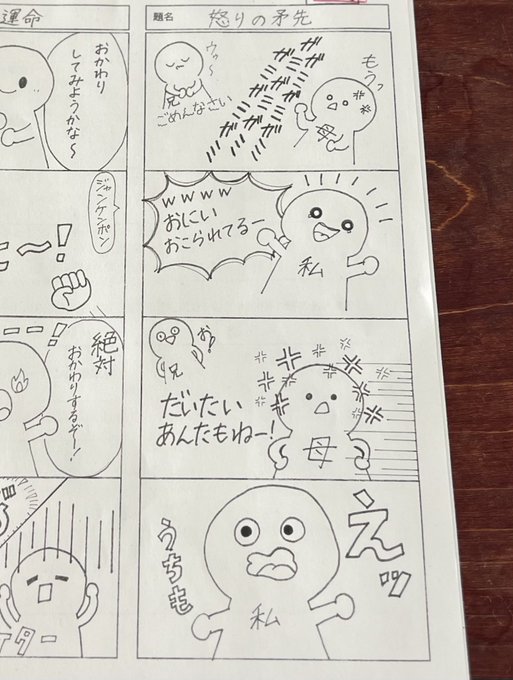 運命
おかわり
してみようかな～
ジャンケンポン
絶対
おかわりするぞー！
題名
怒りの矛先
もうっ
母
ガガガ
ガガガ
ガガガ
ウゥ～
兄
ごめんなさい
wwww
おにい
おこられてるー
私
お！
兄
だいたい
あんたもねー！
母
えッ
うちも
私